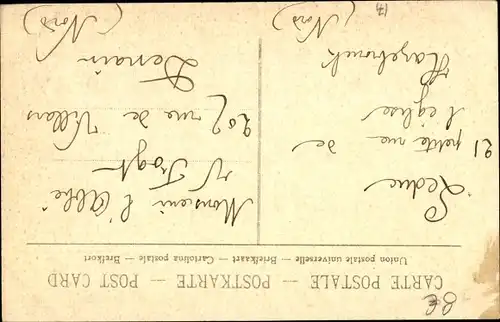 CARTE POSTALE — POSTKARTE — POST CARD
Union postale universelle — Briefkaart — Cartolina postale — Brefkort
Leduc
21 petite rue de
l'église
Hazebrouck
(Nord)
Monsieur l'Abbé
V
202 rue de Villars
Denain
(Nord)
8€